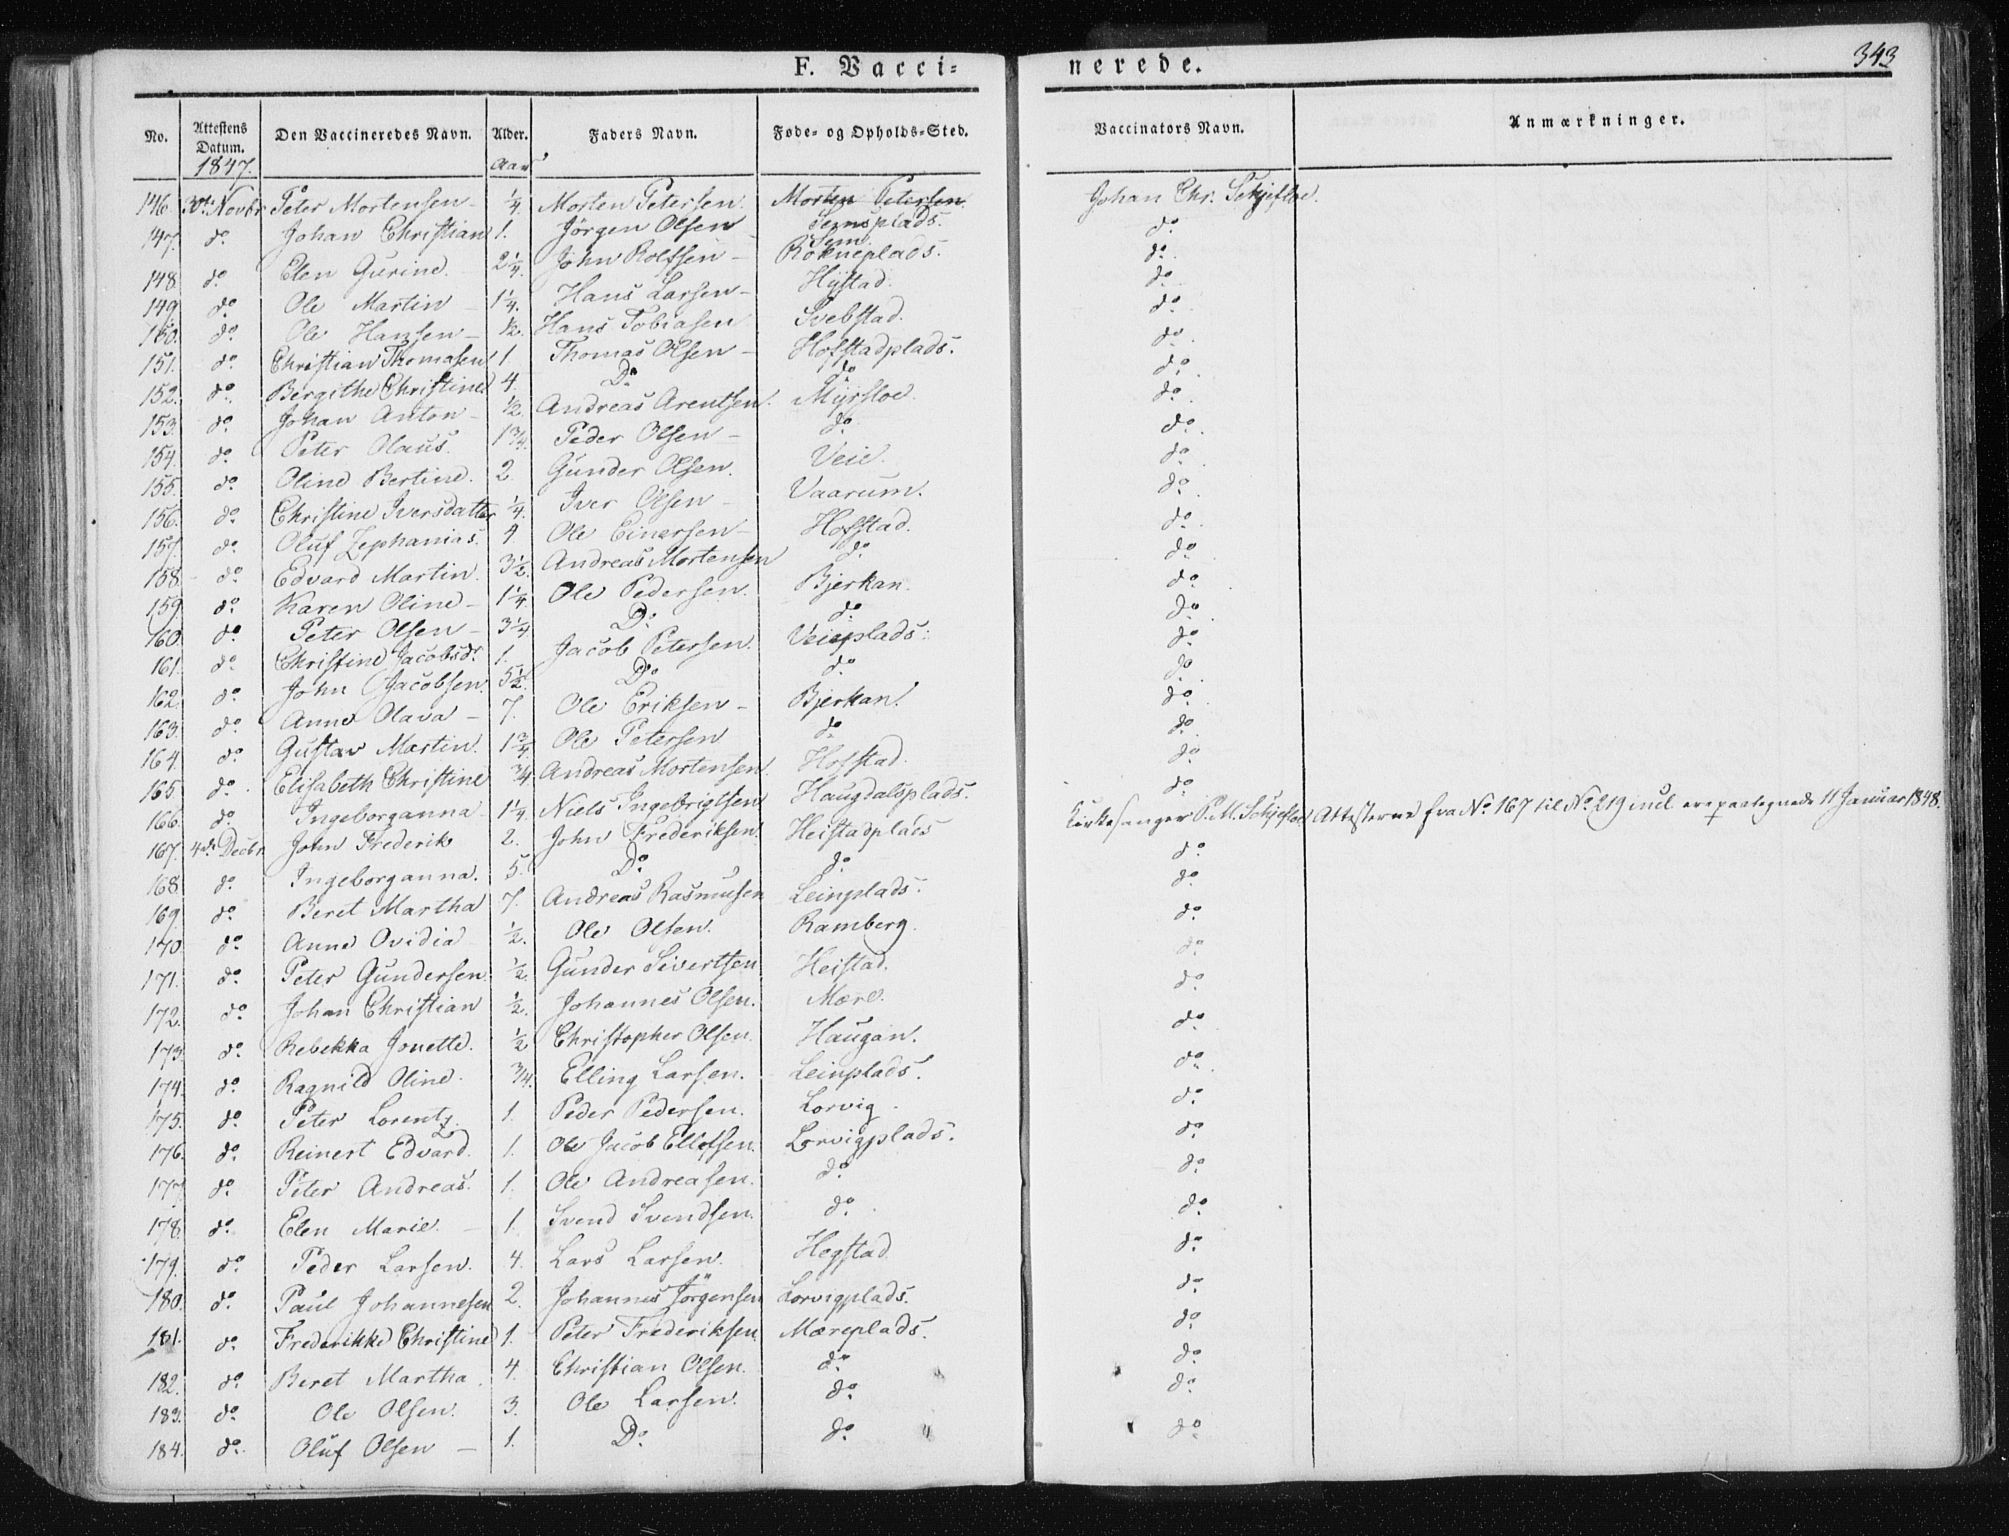 F. Vacci=
nerede.
343
No. Attestens Datum. Den Vaccineredes Navn. Alder. Faders Navn. Føde- og Opholds-Sted. Vaccinators Navn. Anmærkninger.
1847. Aar
146. Novbr Peter Mortensen - 1/4. Morten Petersen. Morten Petersen. Semsplads. Johan Chr. Schjefloe.
147. do. Johan Christian 1. Jörgen Olsen - Sem. do.
148. do. Elen Gurine. 2 1/4. John Rolfsen - Rökneplads. do.
149. do. Ole Martin - 1 1/4. Hans Larsen - Hÿstad. do.
150. do. Ole Hansen - 1/2. Hans Tobiasen Svebstad. do.
151. do. Christian Thomasen 1. Thomas Olsen - Hofstadplads. do.
152. do. Bergithe Christine 4. Do do do.
153. do. Johan Anton - 1/2. Andreas Arentsen. Myrsloe. do.
154. do. Peter Olaus. 1 3/4. Peder Olsen - do. do.
155. do. Oline Bertine. 2. Gunder Olsen. Veie. do.
156. do. Christine Iversdatter 1/4. Iver Olsen - Vaarum. do.
157. do. Oluf Zephanias. 4 Ole Einersen - Hofstad. do.
158. do. Edvard Martin. 3 1/2. Andreas Mortensen do. do.
159. do. Karen Oline - 1 1/4. Ole Pedersen. Bjerkan. do.
160. do. Peter Olsen - 3 1/4 Do. do. do.
161. do. Christine Jacobsdr. 1. Jacob Petersen. Veieplads. do.
162. do. John Jacobsen. 5 1/2. Do. do do.
163. do. Anne Olava - 7. Ole Eriksen - Bjerkan. do.
164. do. Gustav Martin. 1 3/4. Ole Petersen do do.
165. do. Elisabeth Christine 3/4 Andreas Mortensen. Hofstad. do.
166. do. Ingeborganna. 1 1/4 Niels Ingebrigtsen Haugdalsplads. do.
167. 4de Decbr. John Frederik 2. John Frederiksen. Heistadplads Kirkesanger P. M. Schjefloe. Attesterne fra No. 167 til No. 219 incl. ere paategnede 11 Januar 1848.
168. do. Ingeborganna. 5. Do. do. do.
169. do. Beret Martha 7. Andreas Rasmusen Leinplads. do.
170. do. Anne Ovidia - 1/2. Ole Olsen. Ramberg. do.
171. do. Peter Gundersen. 1/2. Gunder Sivertsen. Heistad. do.
172. do. Johan Christian 1/2. Johannes Olsen. Mære. do.
173. do. Rebekka Jonette. 1/2 Christopher Olsen. Haugan. do.
174. do. Ragnild Oline. 3/4. Elling Larsen. Leinplads. do.
175. do. Peter Lorentz. 1. Peder Pedersen. Lorvig. do.
176. do. Reinert Edvard. 1. Ole Jacob Ellefsen. Lorvigplads. do.
177. do. Peter Andreas. 1. Ole Andreasen. do. do.
178. do. Elen Marie. - 1. Svend Svendsen. do. do.
179. do. Peder Larsen. 4. Lars Larsen. Hegstad. do.
180. do. Paul Johannesen 2. Johannes Jörgensen Lorvigplads. do.
181. do. Frederikke Christine 1. Peter Frederiksen. Mæreplads. do.
182. do. Beret Martha. 4. Christian Olsen. do. do.
183. do. Ole Olsen. 3. Ole Larsen. do. do.
184. do. Oluf Olsen - 1. Do. do. do.